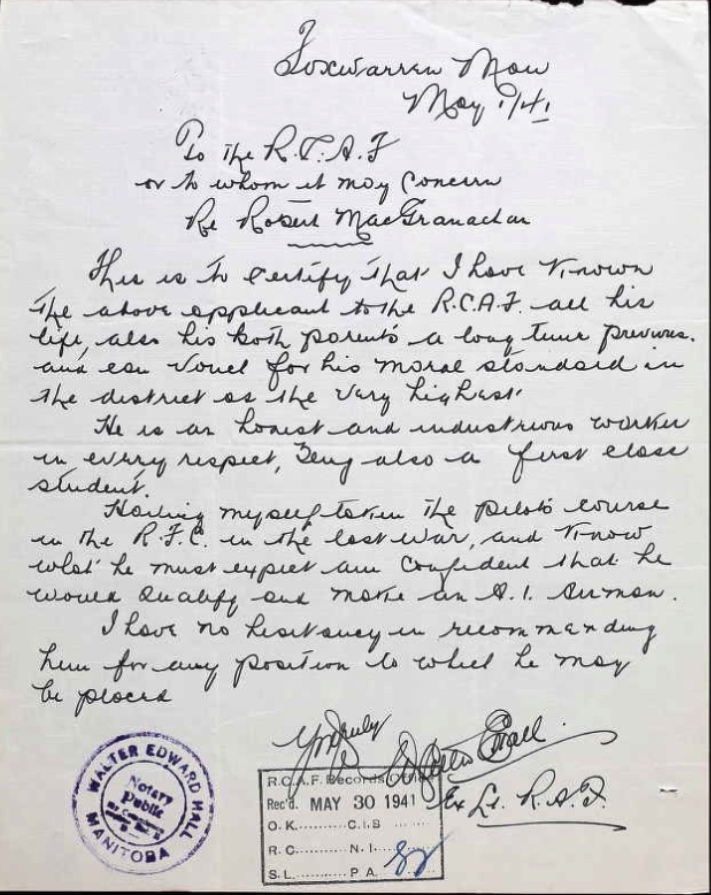 Foxwarren Man
May 1/41
To the R.C.A.F
or to whom it may concern
Re Robert MacGranachan
This is to certify that I have known
the above applicant to the R.C.A.F. all his
life, also his both parents a long time previous.
and can vouch for his moral standard in
the district as the very highest.
He is an honest and industrious worker
in every respect, being also a first class
student.
Having myself taken the pilots course
in the R.F.C. in the last war, and know
what he must expect am confident that he
would qualify and make an A.1. Airman.
I have no hesitancy in recommending
him for any position to which he may
be placed
Yrs truly
Walter E Hall
Ex Lt. R.A.F.
WALTER EDWARD HALL
Notary
Public
MANITOBA
R.C.A.F. Records Office
Rec'd. MAY 30 1941
O.K..........C.I.B ......
R.C..........N.I......
S.L..........P.A.